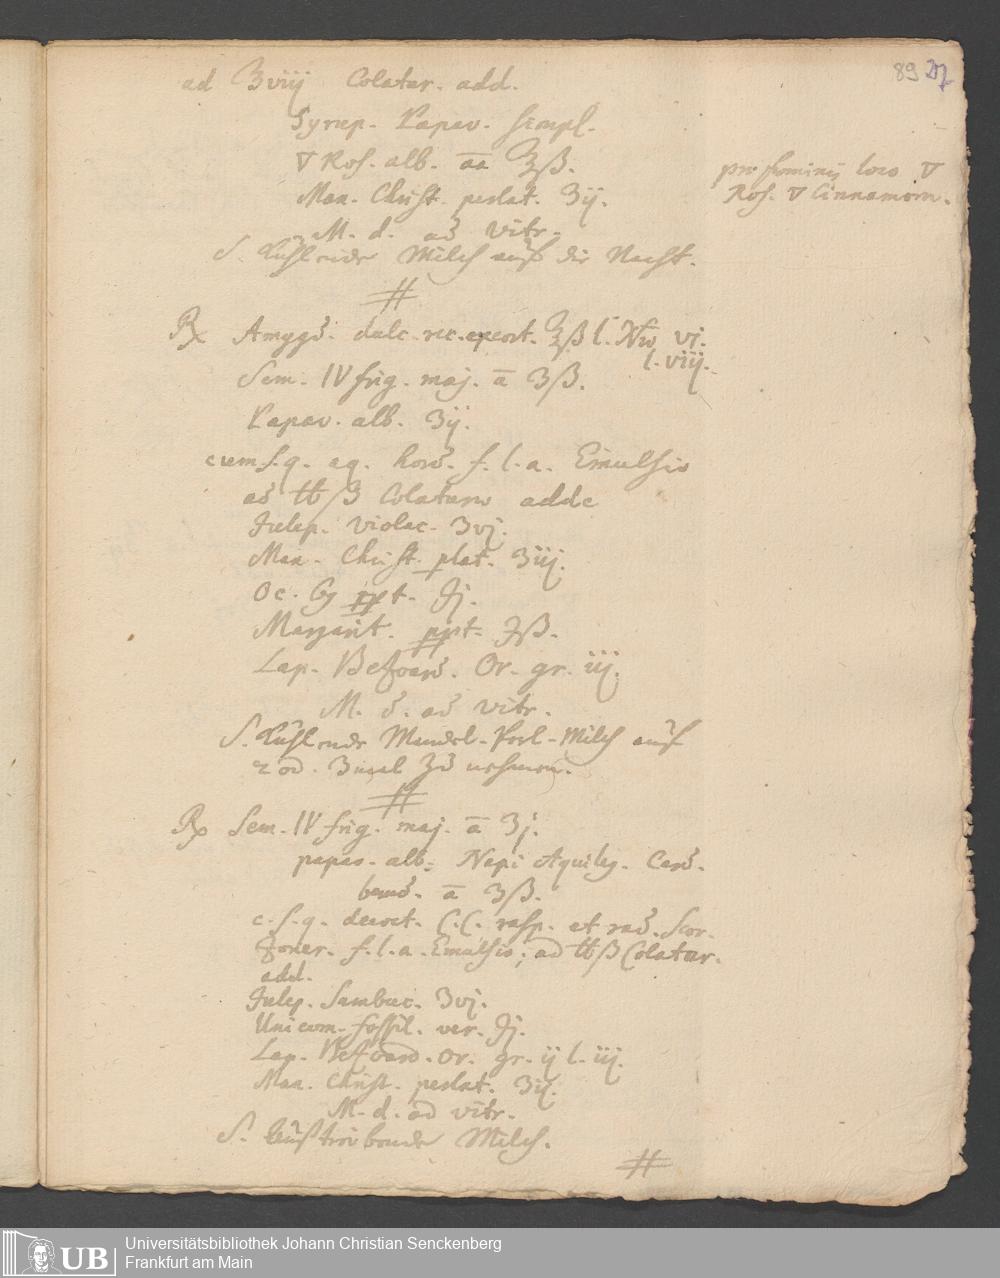 89 27
ad ℥viij Colatur. add.
Syrup. Papav. simpl.
▽ Ros. alb. āā ℥ß.
Man. Christ. perlat. ʒij.
M. d. ad vitr.
S. Kühlende Milch auf die Nacht.
pro hominij loco ▽
Ros. ▽ Cinnamom.
#
℞ Amygd. dulc. rec. excort. ℥ß l. No vj.
l. viij.
Sem. IV frig. maj. ā ʒß.
Papav. alb. ʒij.
cum s. q. aq. hord. f. l. a. Emulsio
ad ℔ß Colaturae adde
Julep. violac. ʒvj.
Man. Christ. plat. ʒiij.
Oc. 69 ppt. ℈j.
Margarit. ppt. ℈ß.
Lap. Bezoard. Or. gr. iij.
M. d. ad vitr.
S. Kühlende Mandel-Perl-Milch auf
2 od. 3 mal zu nehmen.
#
℞ Sem. IV frig. maj. ā ʒj.
papav. alb. Napi Aquileg. Card.
bened. ā ʒß.
c. s. q. decoct. C. C. rasp. et rad. Scor-
zoner. f. l. a. Emulsio; ad ℔ß Colatur.
add.
Julep. Sambuc. ʒvj.
Unicorn. fossil. ver. ℈j.
Lap. Bezoard. or. gr. ij l. iij.
Man. Christ. perlat. ʒij.
M. d. ad vitr.
S. Milch.
#
UB Universitätsbibliothek Johann Christian Senckenberg
Frankfurt am Main